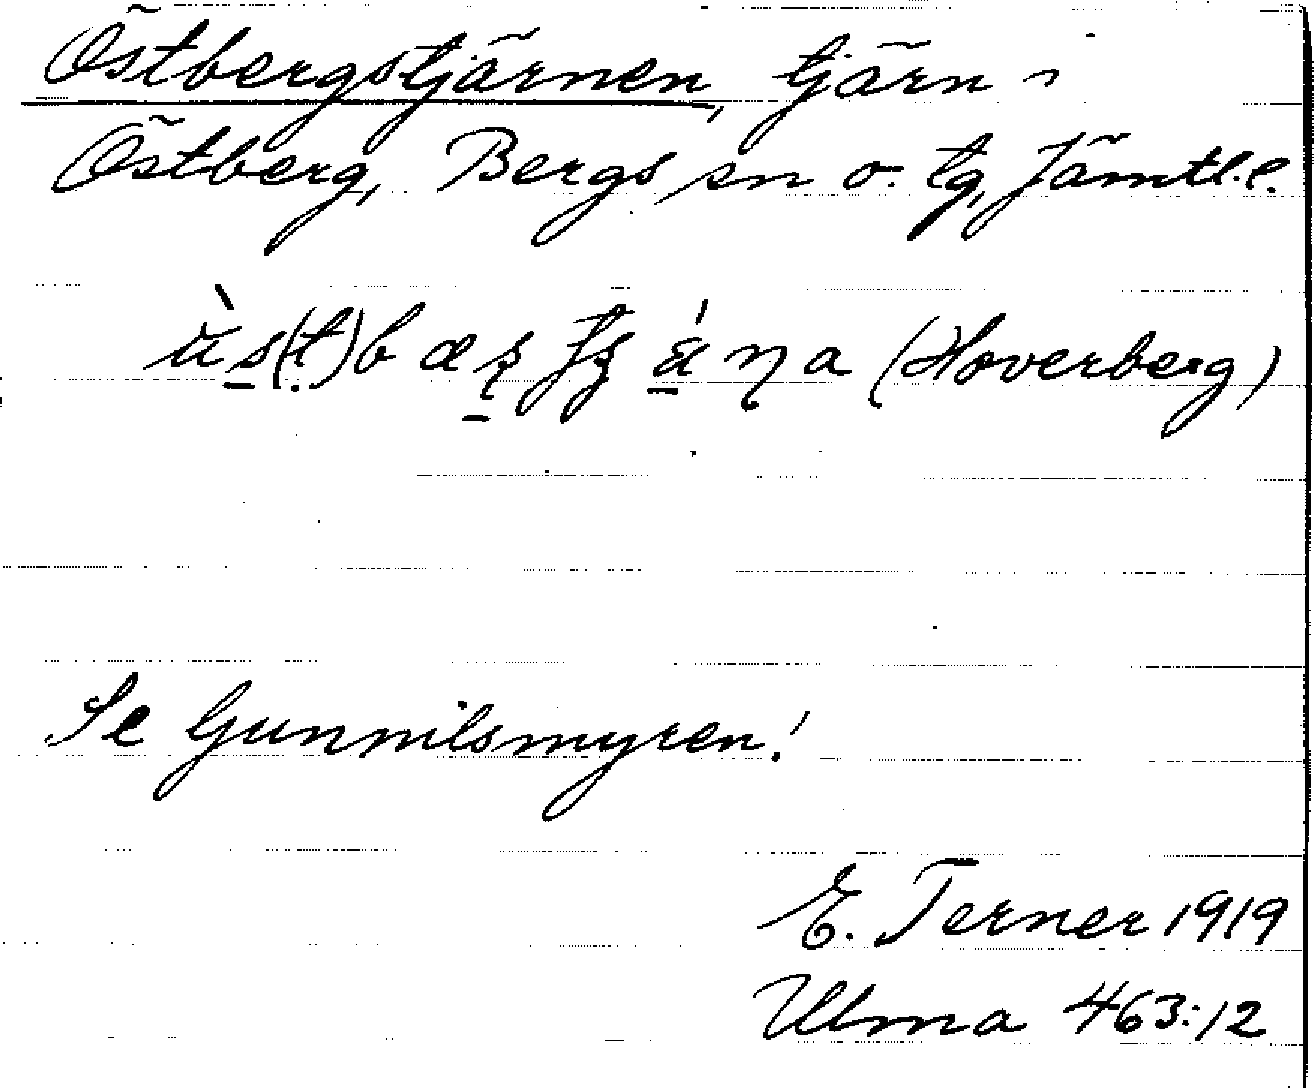 Östbergstjärnen, tjärn i
Östberg, Bergs sn o. tg, Jämtl. l.
(Hoverberg)
Se Gunnilsmyren!
E. Terner 1919
Ulma 463:12